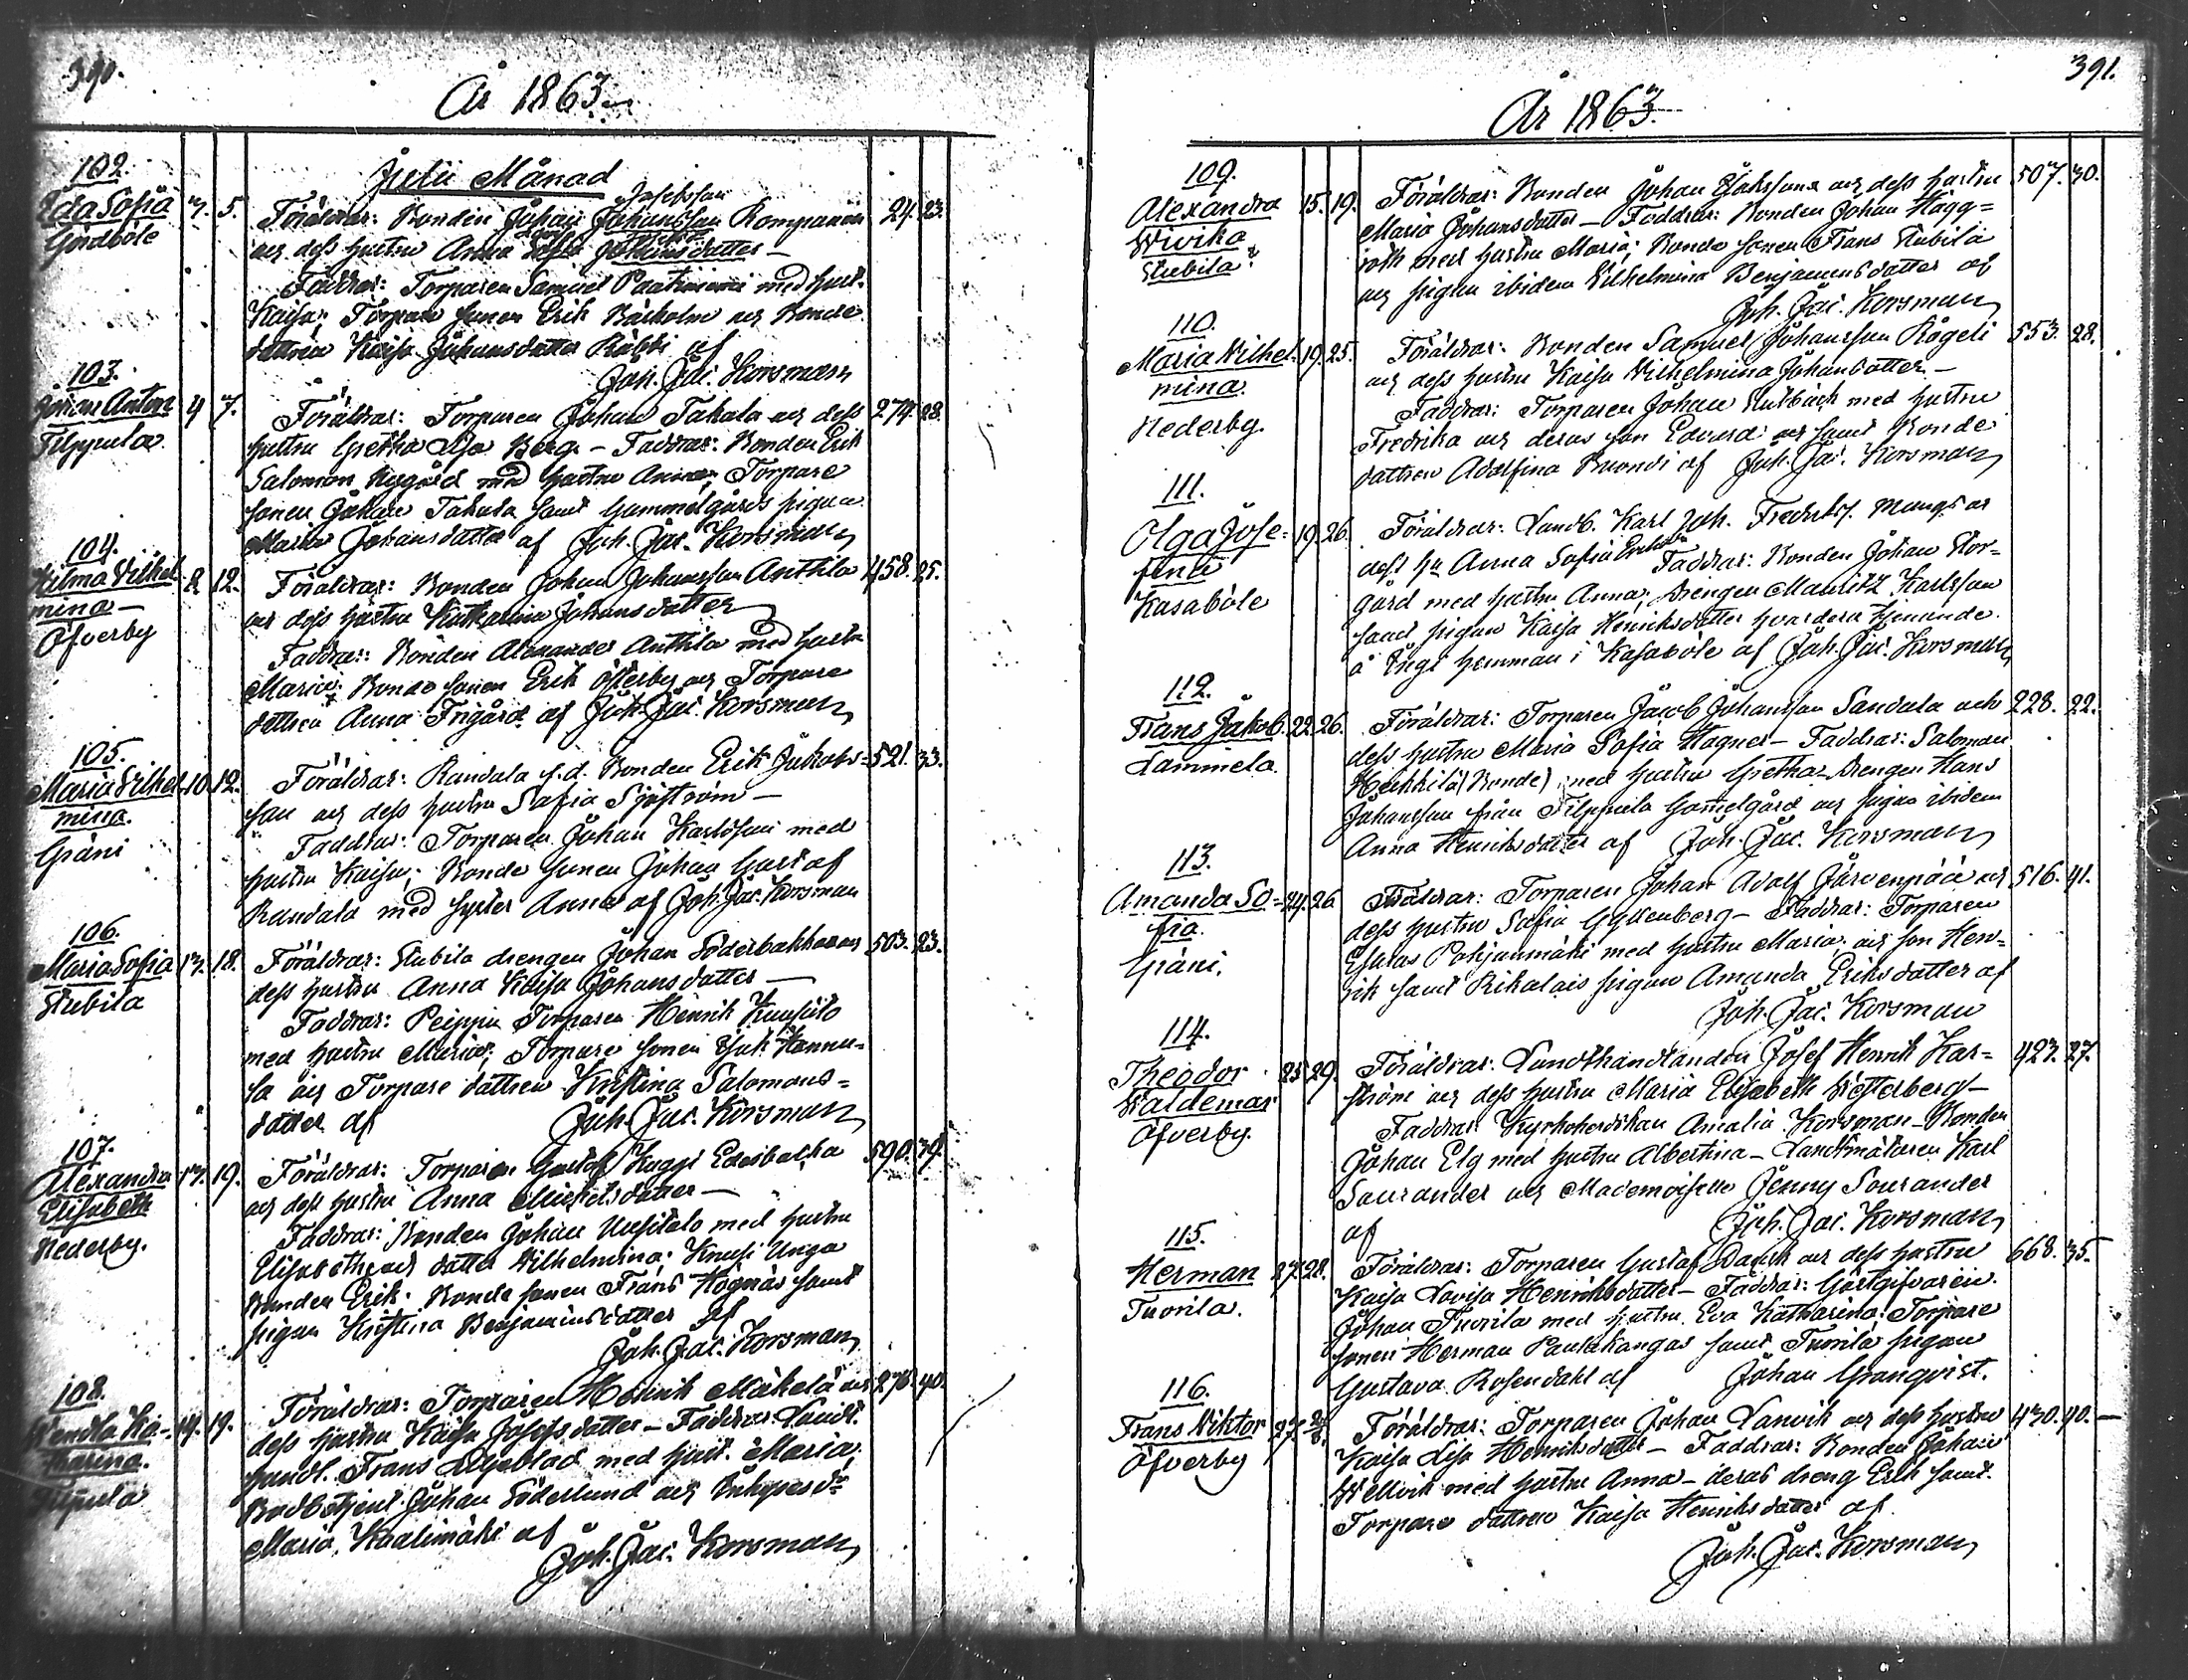 390.
År 1863.
Julii Månad
102.
Ida Sofia
Gördböle
3. 5.
Josefsson
Föräldrar: Bonden Johan Johansson Komparen 24. 23.
och dess hustru Anna Johansdotter –
Faddrar: Torparen Samuel med hust.
Kaisa; Torpare sonen Erik Bärholm och Bonde
dottren Kaisa Johansdotter af
Joh. Jac. Korsman
103.
Johan Anton
Filppula
4 7.
Föräldrar: Torparen Johan Takala och dess 274. 28.
hustru Gretha Lisa Berg. – Faddrar: Bonden Erik
Salomon Nygård med hustru Anna; Torpare
sonen Johan Takala samt Gammelgårds pigan
Maria Johansdotter af Joh. Jac. Korsman
104.
Hilma Vilhel-
mina –
Öfverby
2. 12.
Föräldrar: Bonden Johan Johansson Anttila 458. 25.
och dess hustru Katharina Johansdotter
Faddrar: Bonden Alexander Anttila med hustru
Maria; Bonde sonen Erik Österby och Torpare
dottren Anna Frigård af Joh. Jac. Korsman
105.
Maria Vilhel-
mina.
Gräni
10. 12.
Föräldrar: Randala f.d. Bonden Erik Jakobs- 521. 33.
son och dess hustru Sofia Sjöström –
Faddrar: Torparen Johan Karlsson med
hustru Kaisa; Bonde sonen Johan Gustaf
Randala med syster Anna af Joh. Jac. Korsman
106.
Maria Sofia
Stubila
13. 18.
Föräldrar: Stubila drengen Johan Söderbakka och 503. 23.
dess hustru Anna Kaisa Johansdotter –
Faddrar: Peippu Torparen Henrik
med hustru Maria; Torpare sonen Isak Hannu-
la och Torpare dottren Kristina Salomons-
dotter af Joh. Jac. Korsman
107.
Alexandra
Elisabeth
Nederby.
17. 19.
Föräldrar: Torparen Gustaf Kaggi Edesbacka 590. 39.
och dess hustru Anna Michelsdotter –
Faddrar: Bonden Johan Uusitalo med hustru
Elisabeth och dotter Vilhelmina; Knusi Unga
Bonden Erik; Bonde sonen Frans Högnäs samt
pigan Kristina Benjaminsdotter af
Joh. Jac. Korsman
108.
Wendla Ka-
tharina.
Filppula
14. 19.
Föräldrar: Torparen Henrik Mäkelä och 276. 40.
dess hustru Kaisa Josefsdotter – Faddrar: Landt.
handl. Frans Liljeblad med hust. Maria;
Bodbetjent Johan Söderlund och
Maria Kaalimäki af
Joh. Jac. Korsman
391.
År 1863.
109.
Alexandra
Wivika
Stubila.
15. 19.
Föräldrar: Bonden Johan Isaksson och dess hustru 507. 30.
Maria Johansdotter – Faddrar: Bonden Johan Hägg-
roth med hustru Maria; Bonde sonen Frans Stubila
och pigan ibidem Vilhelmina Benjaminsdotter af
Joh. Jac. Korsman
110.
Maria Vilhel-
mina.
Nederby.
19. 25.
Föräldrar: Bonden Samuel Johansson Rögeli 553. 28.
och dess hustru Kaisa Wilhelmina Johansdotter –
Faddrar: Torparen Johan Stutbäck med hustru
Fredrika och deras son Edvard; och samt Bonde
dottren Adolfina Buondi af Joh. Jac. Korsman
111.
Olga Jose-
fina
Kasaböle
19. 26.
Föräldrar: Landb. Karl Joh. Fredriks. Mangs och
dess hu Anna Sofia Faddrar: Bonden Johan Stor-
gård med hustru Anna; Drengen Mauritz Karlsson
samt pigan Kaisa Henriksdotter hvardera tjenande
å Ängs hemman i Kasaböle af Joh. Jac. Korsman
112.
Frans Jakob.
Lammela.
22. 26.
Föräldrar: Torparen Jacob Johansson Sandala och 228. 22.
dess hustru Maria Sofia Wagner – Faddrar: Salomon
Heikkilä (Bonde) med hustru Gretha. Drengen Hans
Johansson från Filppula Gam̄elgård och pigan ibidem
Anna Henriksdotter af Joh. Jac. Korsman
113.
Amanda So-
fia.
Gräni.
24. 26
Föräldrar: Torparen Johan Adolf Järvenpää och 516. 41.
dess hustru Sofia Gyllenberg – Faddrar: Torparen
Esaias Pohjanmäki med hustru Maria; och son Hen-
rik samt Rikalais pigan Amanda Eriksdotter af
Joh. Jac. Korsman
114.
Theodor
Waldemar
Öfverby.
25 29.
Föräldrar: Landthandlanden Josef Henrik Kar- 423. 27.
ström och dess hustru Maria Elisabeth Wetterberg –
Faddrar: Kyrkoherdskan Amalia Korsman – Bonden
Johan Elg med hustru Albertina – Landtmätaren Karl
Sourander och Mademoisellen Jenny Sourander
af Joh. Jac. Korsman
115.
Herman
Tuorila.
27. 28.
Föräldrar: Torparen Gustaf Dansk och dess hustru 668. 35.
Kaisa Lovisa Henriksdotter – Faddrar: Gästgifvaren
Johan Tuorila med hustru Eva Katharina; Torpare
sonen Herman Pentikangas samt Tuorila pigan
Gustava Rosendahl af Johan Granqvist.
116.
Frans Wiktor
Öfverby
27. 2/8.
Föräldrar: Torparen Johan Lanvik och dess hustru 430. 40. –
Kaisa Lisa Henriksdotter – Faddrar: Bonden Johan
Wellvik med hustru Anna – deras dreng Erik samt
Torpare dottren Kaisa Henriksdotter af
Joh. Jac. Korsman